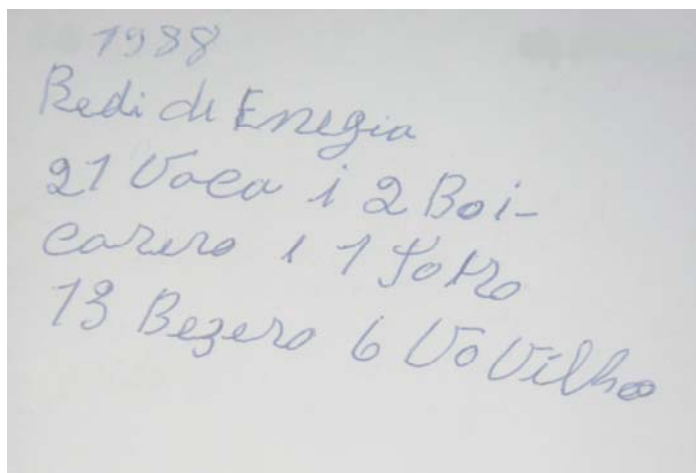 1988
Redi de Enegia
21 Vaca i 2 Boi-
carero i 1 Totro
13 Bezero 6 Vo Vilho